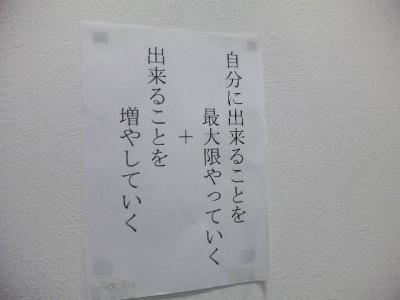 自分に出来ることを
最大限やっていく
＋
出来ることを
増やしていく